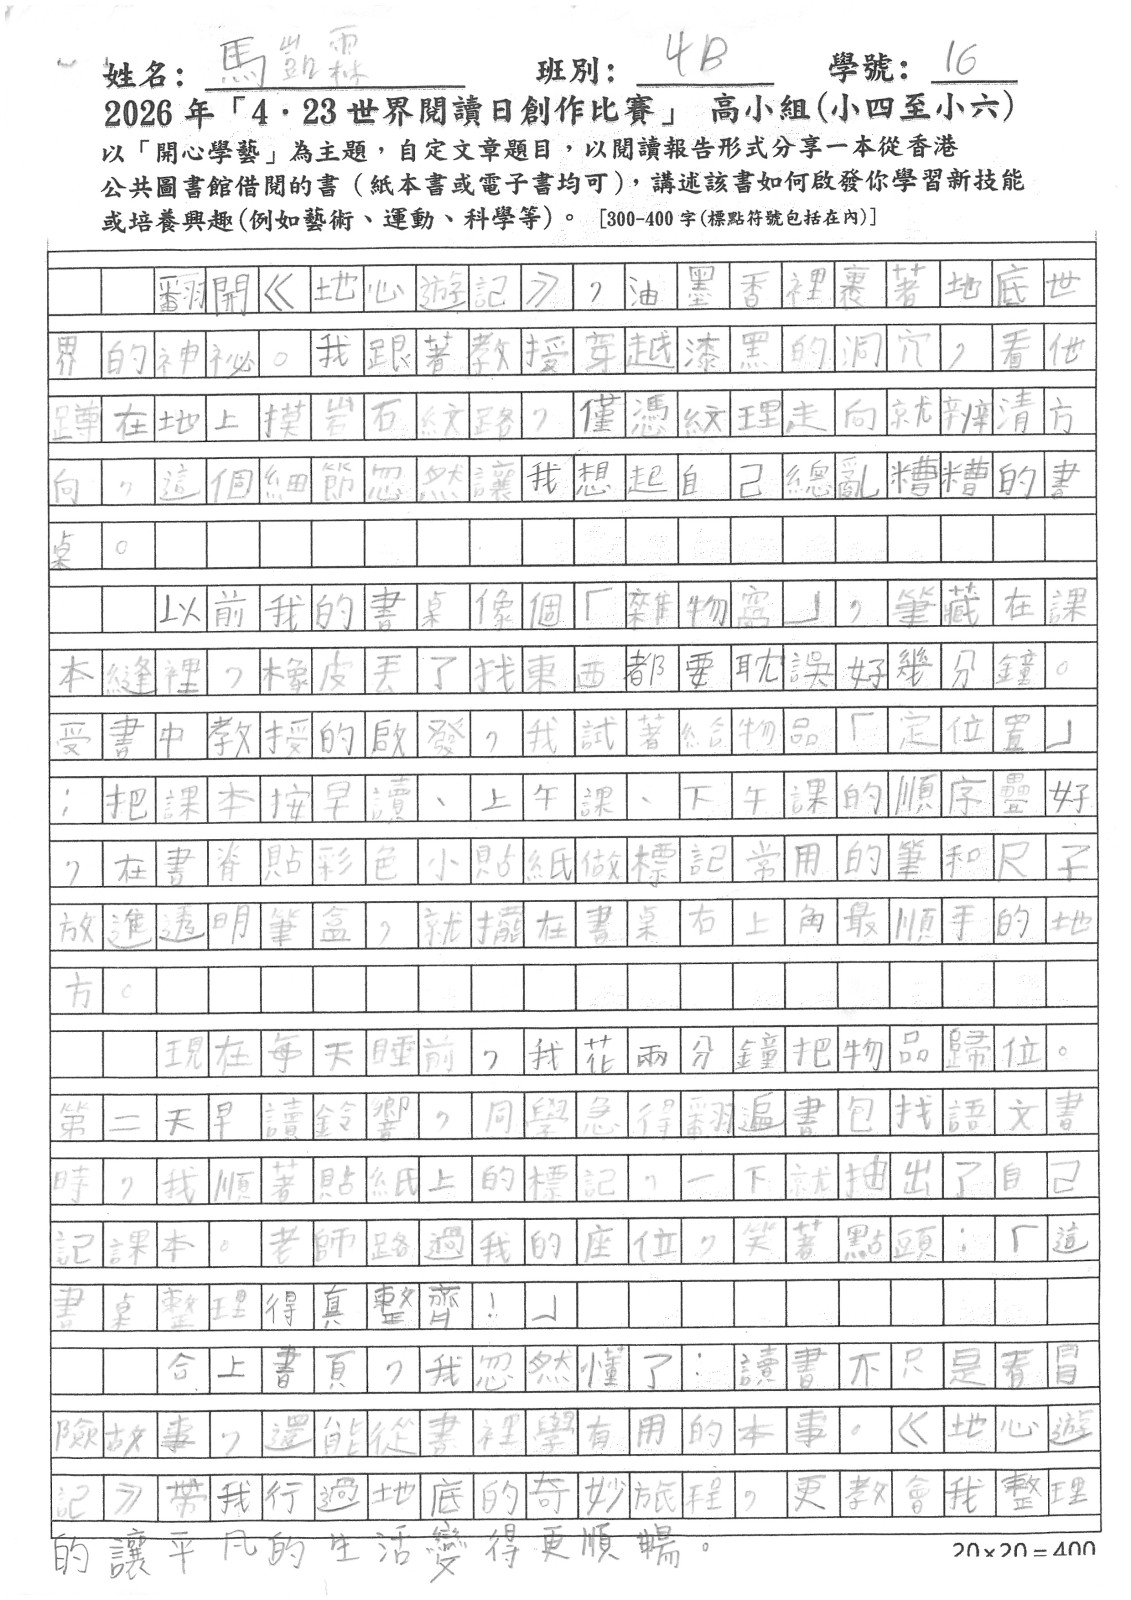 姓名：馬凱霖 班別：4B 學號：16
2026年「4．23世界閱讀日創作比賽」 高小組(小四至小六)
以「開心學藝」為主題，自定文章題目，以閱讀報告形式分享一本從香港
公共圖書館借閱的書（紙本書或電子書均可），講述該書如何啟發你學習新技能
或培養興趣(例如藝術、運動、科學等)。 [300-400字(標點符號包括在內)]
翻開《地心遊記》，油墨香裡裹著地底世
界的神祕。我跟著教授穿越漆黑的洞穴，看他
蹲在地上摸岩石紋路，僅憑紋理走向就辨清方
向，這個細節忽然讓我想起自己總亂糟糟的書
桌。
以前我的書桌像個「雜物窩」，筆藏在課
本縫裡，橡皮丟了找東西都要耽誤好幾分鐘。
受書中教授的啟發，我試著給物品「定位置」
；把課本按早讀、上午課、下午課的順序疊好
，在書脊貼彩色小貼紙做標記常用的筆和尺子
放進透明筆盒，就擺在書桌右上角最順手的地
方。
現在每天睡前，我花兩分鐘把物品歸位。
第二天早讀鈴響，同學急得翻遍書包找語文書
時，我順著貼紙上的標記，一下就抽出了自己
記課本。老師路過我的座位，笑著點頭：「這
書桌整理得真整齊！」
合上書頁，我忽然懂了：讀書不只是看冒
險故事，還能從書裡學有用的本事。《地心遊
記》帶我行過地底的奇妙旅程，更教會我整理
的讓平凡的生活變得更順暢。
20×20=400